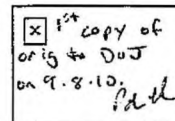 x 1st copy of
orig to DoJ
on 9.8.10.